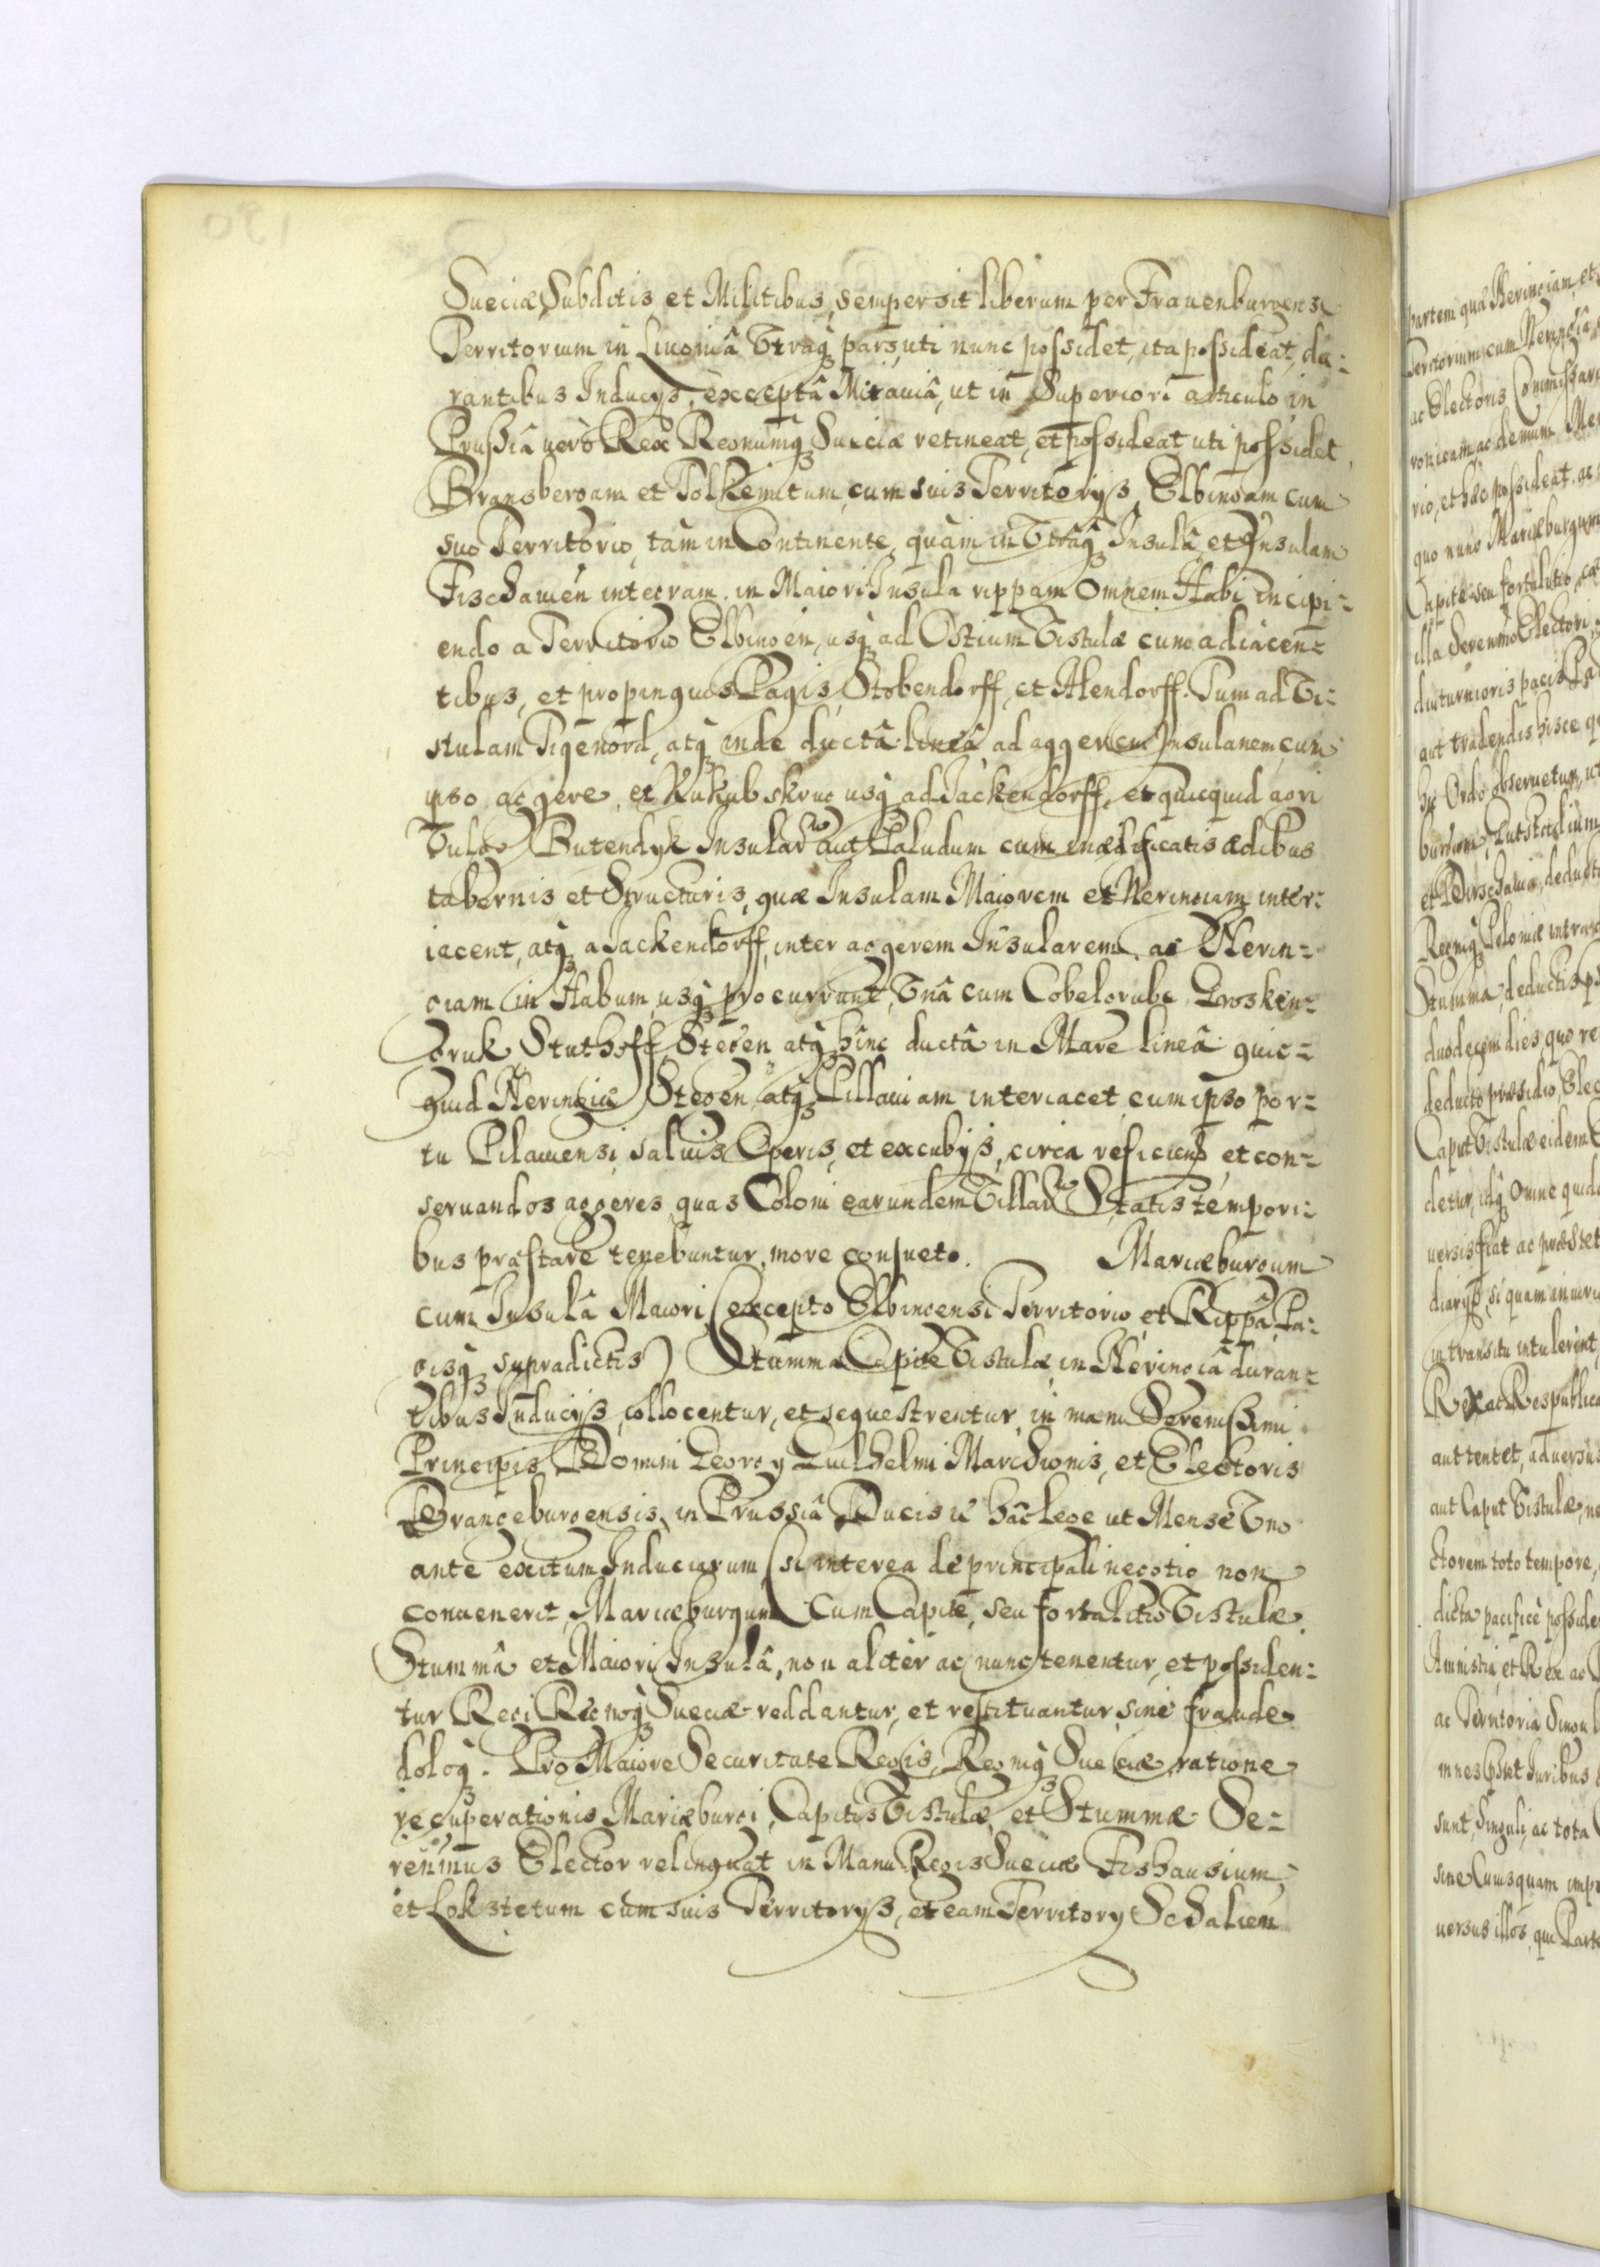 Sueciæ, Subditis et Militibus, semper sit liberum per Frauenburgense
Territorium in Livoniâ Utraq. pars, uti nunc possidet, ita possideat, du:
rantibus Inducijs, exceptâ Mitaviâ, ut in Superiori articulo, in
Prussiâ verò Rex Regnumq. Sueciæ retineat, et possideat uti possidet
Bransbergam et Tolkemitum, cum suis Territorijs, Elbingam cum
suo Territorio, tàm in Continente, quàm in Utrâq. Insulâ, et Insulam
Fischauen integram, in Maiori Insula rippam Omnem Habi incipi:
endo a Territorio Elbingen, usq. ad Ostium Vistulæ cum adiacen:
tibus, et propinquis Pagis, Stobendorff, et Alendorff. Tum ad Vi:
stulam Tigenord, atq. inde ductâ lineâ ad aggerem Insulanem, cum
ipso aggere, et Kukubskrug usq. ad Jackendorff, et quicquid agri
Vulgo Butendyk Insularū aut Paludum cum inædificatis ædibus
tabernis et Structuris, quæ Insulam Maiorem et Neringiam inter:
iacent, atq. a Jackendorff, inter aggerem Insularem, ac Nerin:
giam in Habum, usq. procurrunt, Unâ cum Cobelgrube, Grosken:
gruk Stuthoff, Stegen atq. hinc ductâ in Mare lineâ quic:
quid Neringiæ Stegen, atq. Pillaviam interiacet, cum ipso por:
tu Pilauensi, saluis Operis, et excubijs, circa reficiend et con:
servandos aggeres, quas Coloni earundem Villarū Statis tempori:
bus præstare tenebuntur, more consueto. Mariæburgum
cum Insulâ Maiori, (excepto Elbingensi Territorio, et Rippâ, Pa:
gisq. supradictis) Stumma Capite Vistulæ, in Neringiâ duran:
tibus Inducijs, collocentur, et sequestrentur, in manu Serenissimi
Principis Domini Georgy Guilhelmi Marchionis, et Electoris
Brandeburgensis, in Prussiâ Ducis &c hâc lege ut Mense Uno
ante exitum Induciarum (si interea de principali negotio non
conuenerit, Mariæburgum Cum Capite, seu fortalitio Vistulæ
Stummâ et Maiori Insulâ, non aliter ac nunc tenentur, et possiden:
tur Regi Regnoq. Sueciæ reddantur, et restituantur, sine fraude
doloq. Pro Maiore Securitate Regis, Regniq. Sueciæ, ratione
recuperationis Mariæburgi, Capitis Vistulæ, et Stummæ Se:
renimus Elector relinquat in Manu Regis Sueciæ Fishausium,
et Lokstetum cum suis Territorijs, et eam Territory Schalien

partem quæ Neringiam, et
Territorium cum
ac Electoris Commissari
ac demum Me
rio, et hæc possideat ac
quo nunc Mariæburgum
Capite seu fortalitio,
illa Serenimo Electori
diuturnioris pacis
aut tradendis hisce
hic Ordo obseruetur, ut
deducto præsidio, Elec
Caput Vistulæ eidem
detur, idq. Omne quid
uersis fiat ac præstet
diarijs, si quam iniuri
in transitu intulerint,
Rex at Respublica
aut tentet, aduersus
aut Caput Vistulæ, ne
ctorem toto tempore,
dicta pacificè possid
Amnistia, et Rex ac
ac Territoria Singul
mnes sint Iuribus
sunt, Singuli, ac tota
sine Cuiusquam imp
uersus illos, qui Parte